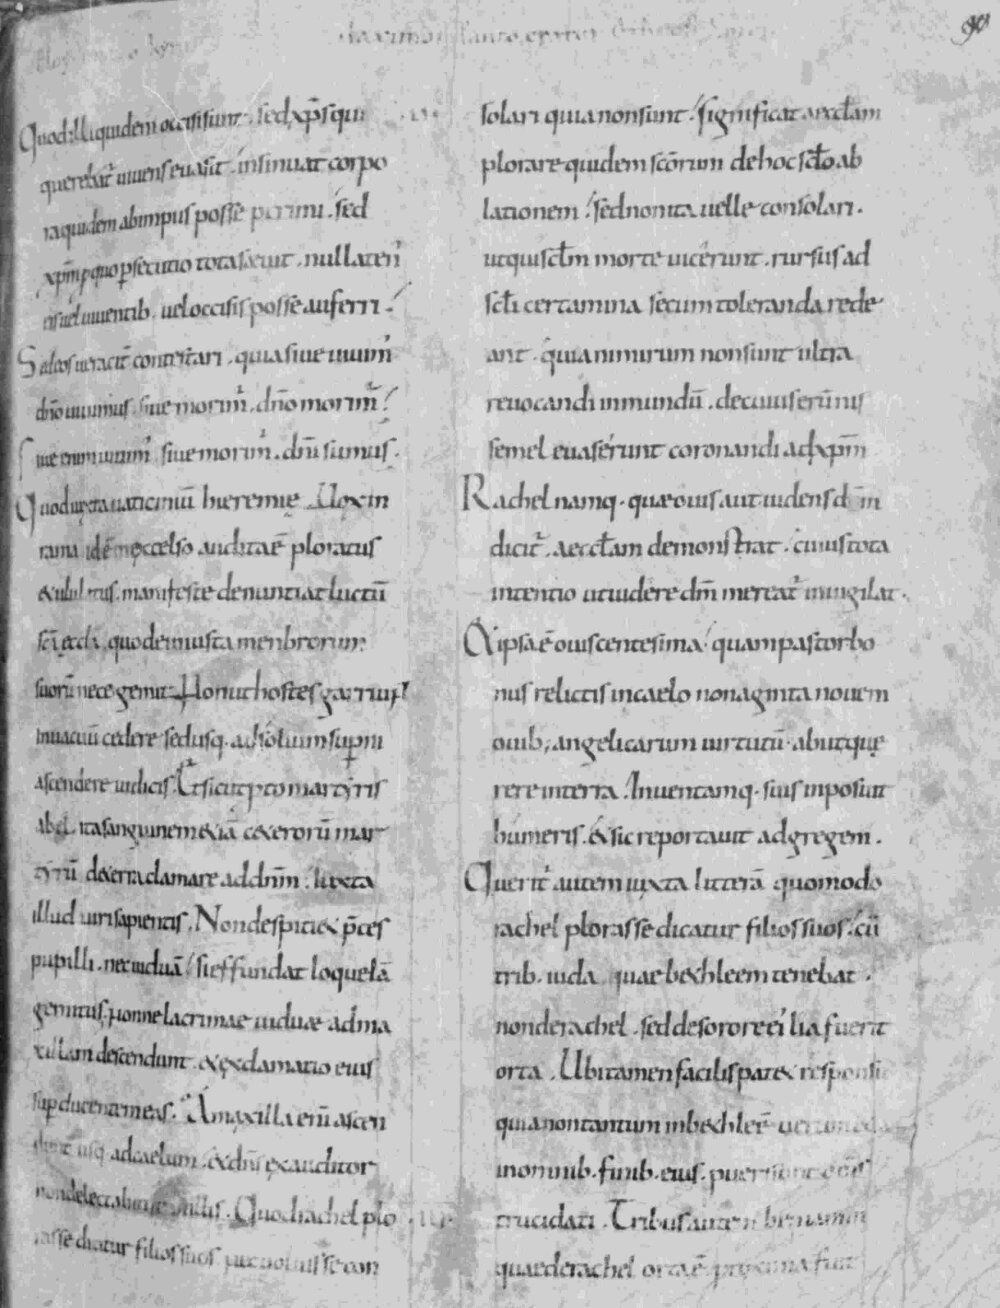 Quod illi quidem occisi sunt. sed xp̄s qui
querebat᷑ uiuens euasit. insinuat corpo
ra quidem ab impiis posse perimi. sed
xp̄m p quo psecutio tota saeuit. nullaten᷒
eis uel uiuentib. uel occisis posse auferri.
Sed eos ueracit᷑ contestari. quia siue uiuim᷒
dn̄o uiuimus. siue morim᷒. dn̄o morim᷒.
Siue enim uiuim᷒. siue morim᷒. dn̄i sumus.
Quod iuxta uaticiniū hieremię Uox in
rama idē in excelso audita ē ploratus
& ululatus. manifeste denuntiat luctū
scē ęccłę. quod e iniusta menbrorum
suorū nece gemit. Non ut hostes garriunt
in uacuū cedere sed usq. ad solium supni
ascendere iudicis. Et sicut ptomartyris
abel. ita sanguinem &iā c&erorū mar
tyrū de terra clamare ad dn̄m. Iuxta
illud uiri sapientis. Non despici& p̄ces
pupilli. nec uiduā si effundat loquelā
gemitus. Nonne lacrimae uiduae ad ma
xillam descendunt. & exclamatio eius
sup ducentem eas. A maxilla enī ascen
dunt usq. ad caelum. & dn̄s exauditor
non delectabitur in illis. Quod rachel plo
rasse dicatur filios suos. nec uoluisse con
solari quia non sunt. significat aeccłam
plorare quidem scōrum de hoc scło ab
lationem. sed non ita uelle consolari.
ut qui scłm morte uicerunt. rursus ad
scłi certamina secum toleranda rede
ant. quia nimirum non sunt ultra
reuocandi in mundū. de cuius erūnis
semel euaserunt coronandi ad xp̄m
Rachel namq. quae ouis aut uidens dm̄
dicit᷑. aeccłam demonstrat. cuius tota
intentio ut uidere dm̄ mereat᷑ inuigilat.
Et ipsa ē ouis centesima quam pastor bo
nus relictis in caelo nonaginta nouem
ouib; angelicarum uirtutū. abiit que
rere in terra. Inuentamq. suis inposuit
humeris. & sic reportauit ad gregem.
Querit᷑ autem iuxta litterā quomodo
rachel plorasse dicatur filios suos. cū
trib. iuda quae b&hleem tenebat.
non de rachel. sed de sorore ei᷒ lia fuerit
orta. Ubi tamen facilis pat& responsio
quia non tantum in b&hleē uerum &
in omnib. finib. eius. pueri sunt om̄s
trucidati. Tribus autem beniamin
quae de rachel orta ē. proxima fuit